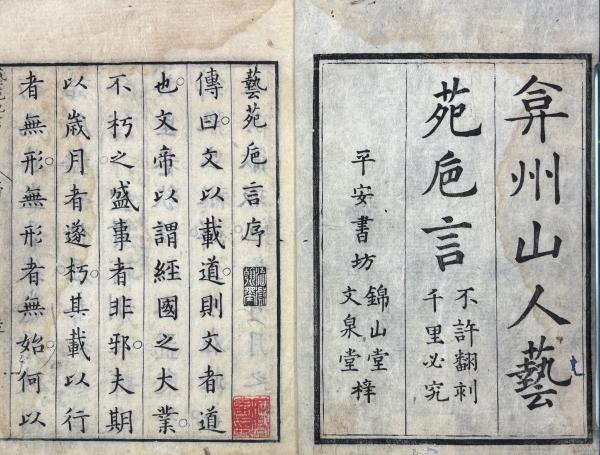 弇州山人藝
苑巵言
不許翻刻
千里必究
平安書坊
錦山堂
文泉堂
梓
藝苑巵言序
傳曰文以載道則文者道
也文帝以謂經國之大業
不朽之盛事者非邪夫期
以歲月者遂朽其載以行
者無形無形者無始何以